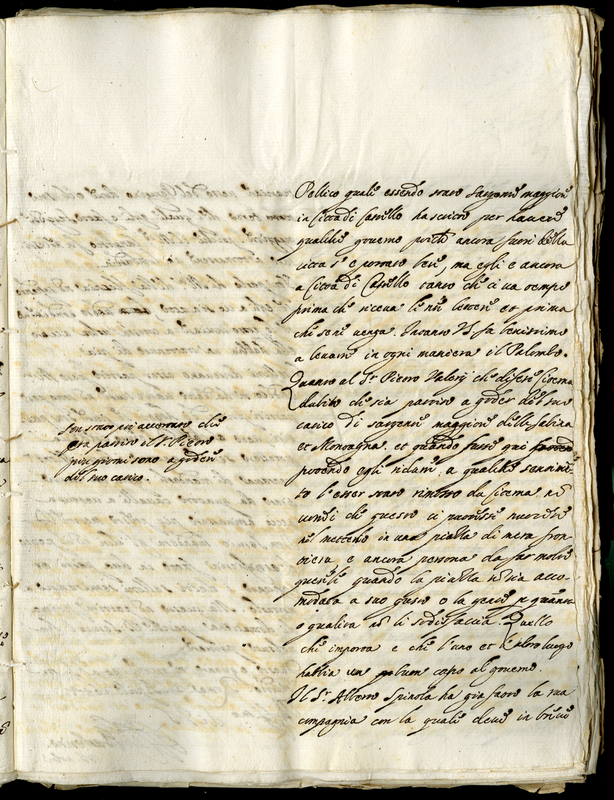 Pellico quale essendo stato sargente maggiore
in Città di Castello ha scritto per havere
qualche governo poiche ancora fuori della
città s'è portato bene, ma egli è ancora
a Città di Castello tanto che ci va tempo
prima che riceva le mie lettere et prima
che se ne venga. Intanto V.S. fa benissimo
a levare in ogni maniera il Palombo.
Quanto al Sr. Pietro Valerij che difese Civerna
dubito che sia partito a goder del suo
carico di sargente maggiore della Sabina
et Montagna. et quando fusse qui
potendo egli ridursi a qualche sentimen
to l'esser stato rimosso da Civerna nō
vorrei che questo ci potesse nuocere
nel metterlo in una piazza di mera fron
tiera e ancora persona da far molte
querele quando la piazza nō sia acco
modata a suo gusto o la gente p quantità
o qualità nō li sodisfaccia. Quello
che importa è che l'uno et l'altro luogo
habbia un buon capo al governo.
Il Sr. Alberto Spinola ha già fatto la sua
compagnia con la quale deve in breve
Son stato poi accertato che
era partito il Sr. Pietro
più giorni sono a godere
del suo carico.